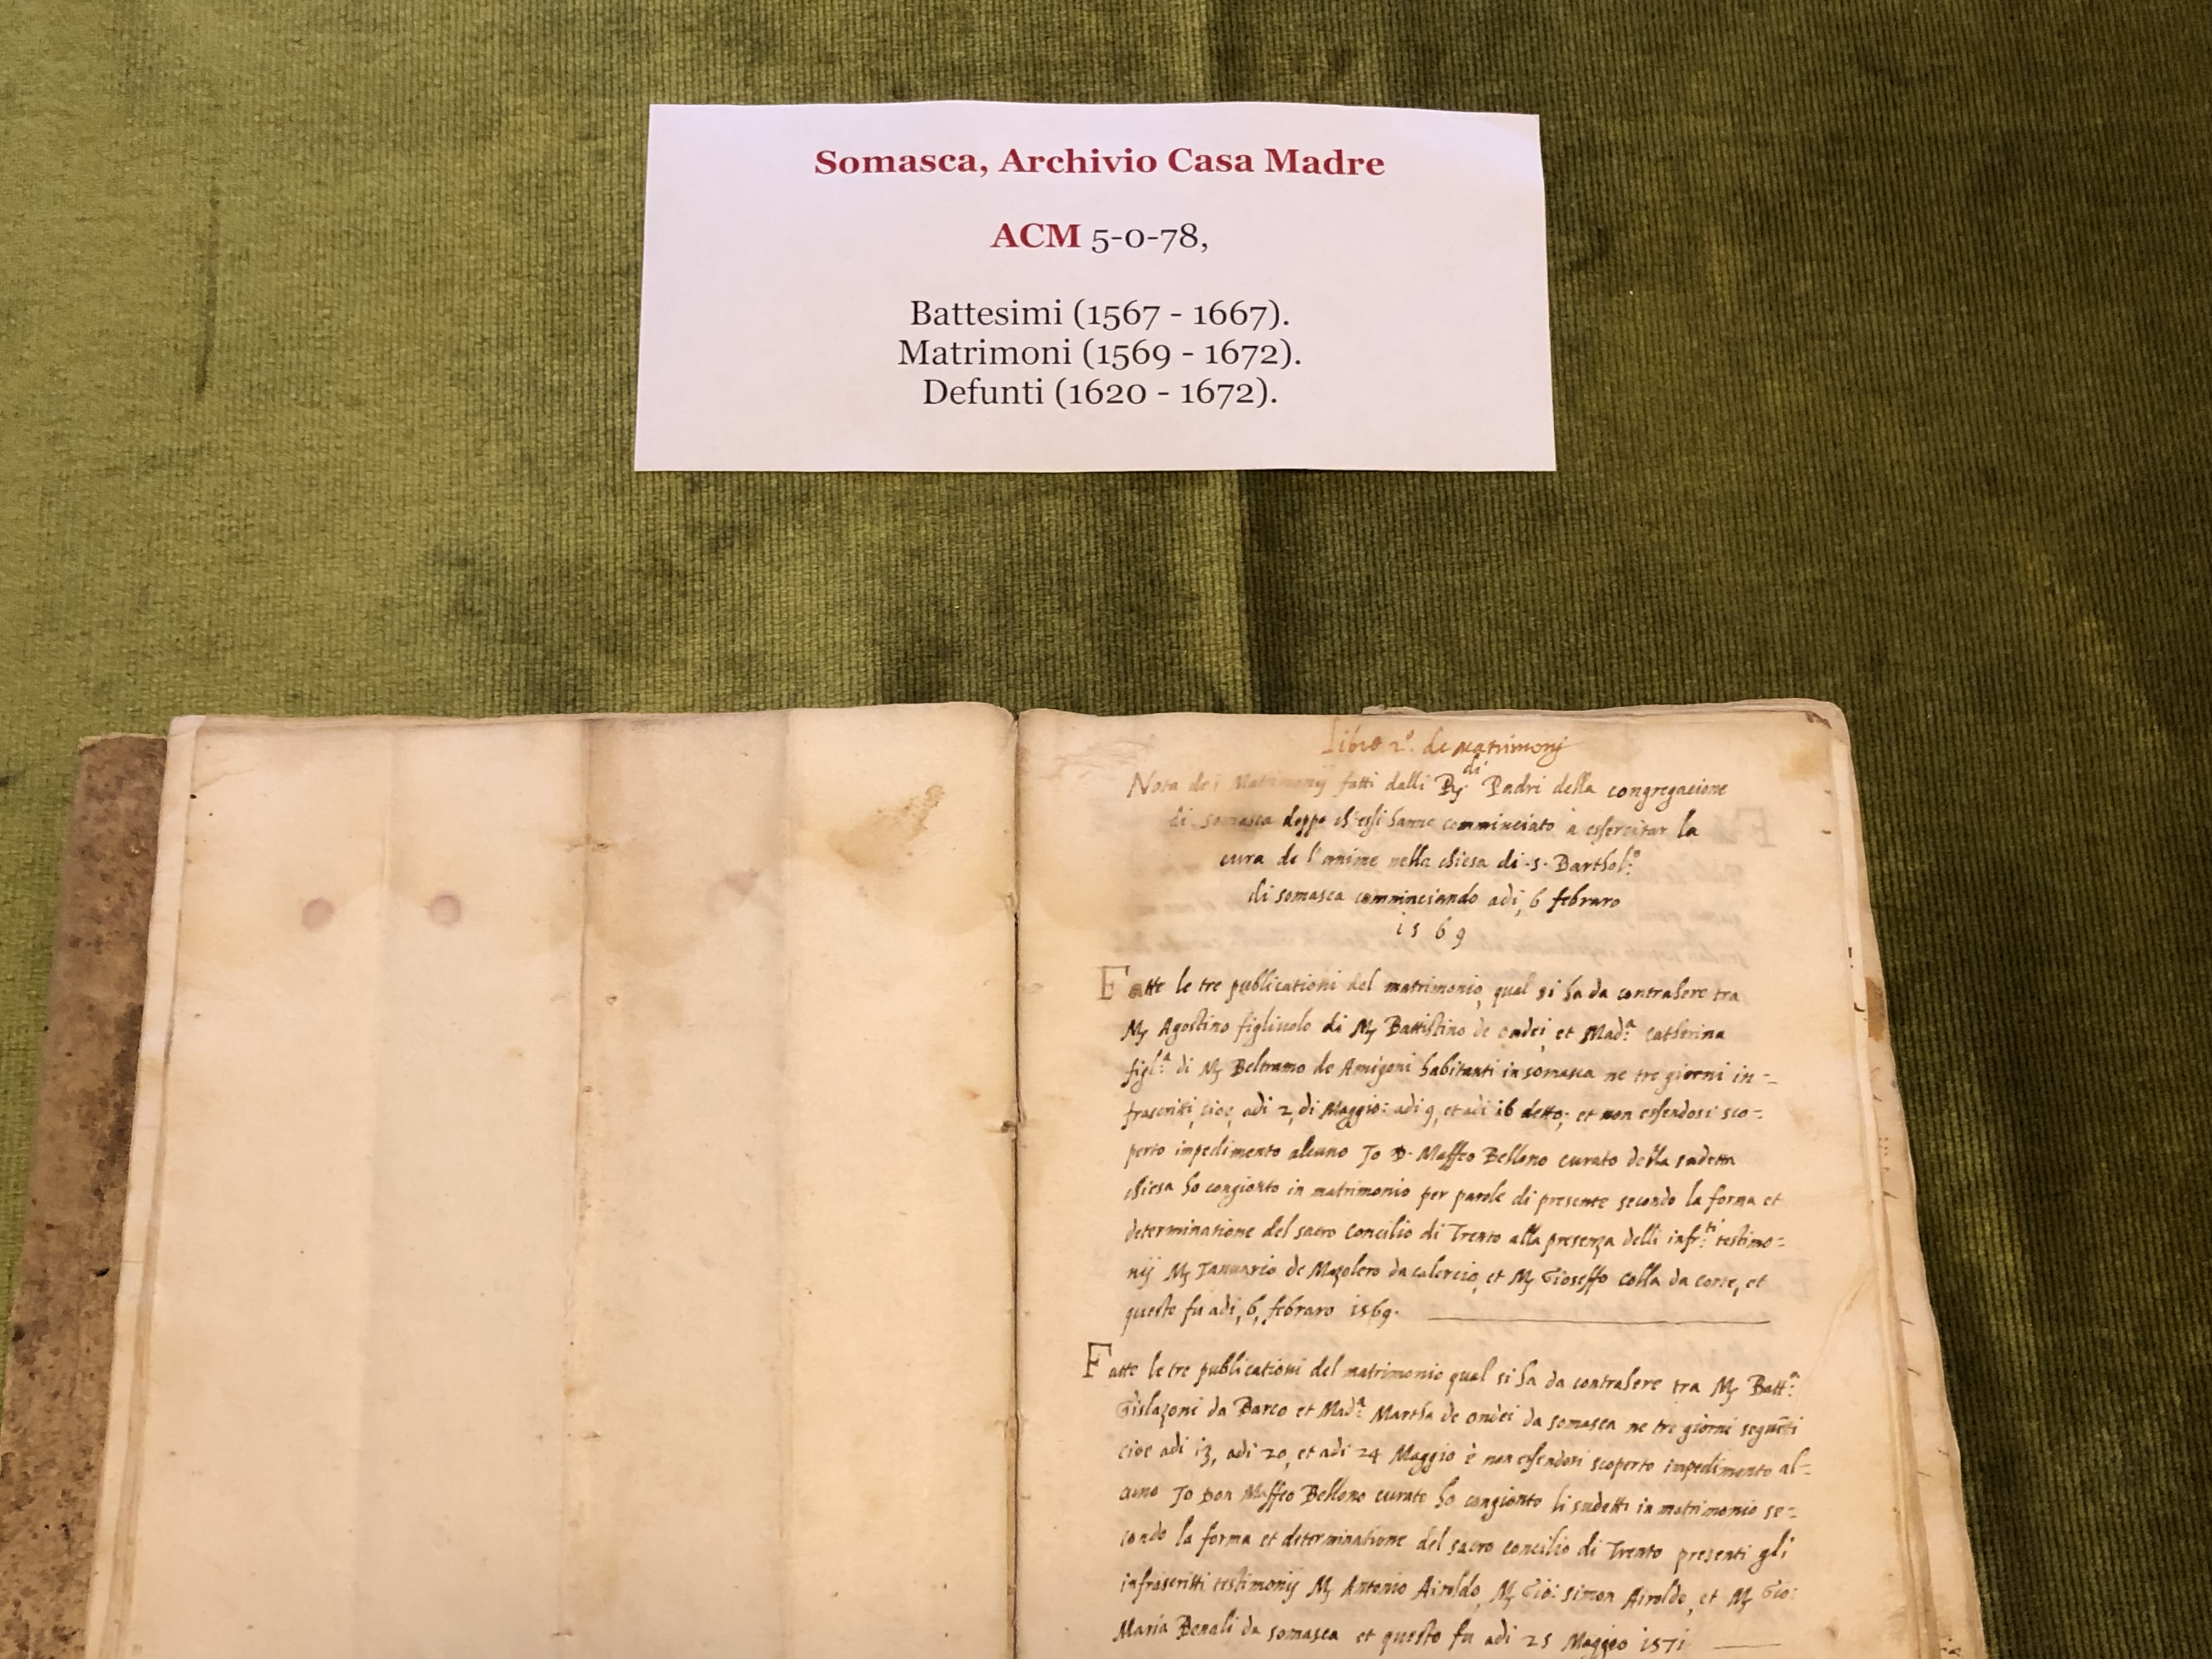 Somasca, Archivio Casa Madre
ACM 5-0-78,
Battesimi (1567 - 1667).
Matrimoni (1569 - 1672).
Defunti (1620 - 1672).
Libro 2º. de Matrimonij
Nota de i Matrimonij fatti dalli R.di Padri della congregacione
di somasca doppo ch'essi hanno comminciato à essercitar la
cura de l'anime nella chiesa di .s. Barthol:º
di somasca comminciando adi, 6 febraro
1569
Fatte le tre publicationi del matrimonio, qual si ha da contrahere tra
Mʳ Agostino figliuolo di Mʳ Battistino de ondei, et Mad:ª Catherina
figl:ª di Mʳ Beltramo de Amigoni habitanti in somasca ne tre giorni in=
frascritti, cioe, adi 2, di Maggio: adi 9, et adi 16 detto; et non essendosi sco=
perto impedimento alcuno Io D. Maffeo Bellono curato della sudetta
chiesa ho congionto in matrimonio per parole di presente secondo la forma et
determinatione del sacro Concilio di Trento alla presenza delli infr:ti testimo=
nij Mʳ Ianuario de Mazolero da calercio, et Mʳ Gioseffo Colla da corte, et
questo fu adi, 6, febraro 1569.
Fatte le tre publicationi del matrimonio qual si ha da contrahere tra Mʳ Batt:ª
Gislazoni da Barco et Mad:ª Martha de ondei da somasca ne tre giorni seguēti
cioe adi 13, adi 20, et adi 24 Maggio è non essendosi scoperto impedimento al=
cuno Io Don Maffeo Bellono curato ho congionto li sudetti in matrimonio se=
condo la forma et determinatione del sacro concilio di Trento presenti gli
infrascritti testimonij Mʳ Antonio Airoldo, Mʳ Gio: Simon Airoldo, et Mʳ Gio:
Maria Benali da somasca et questo fu adi 25 Maggio 1571